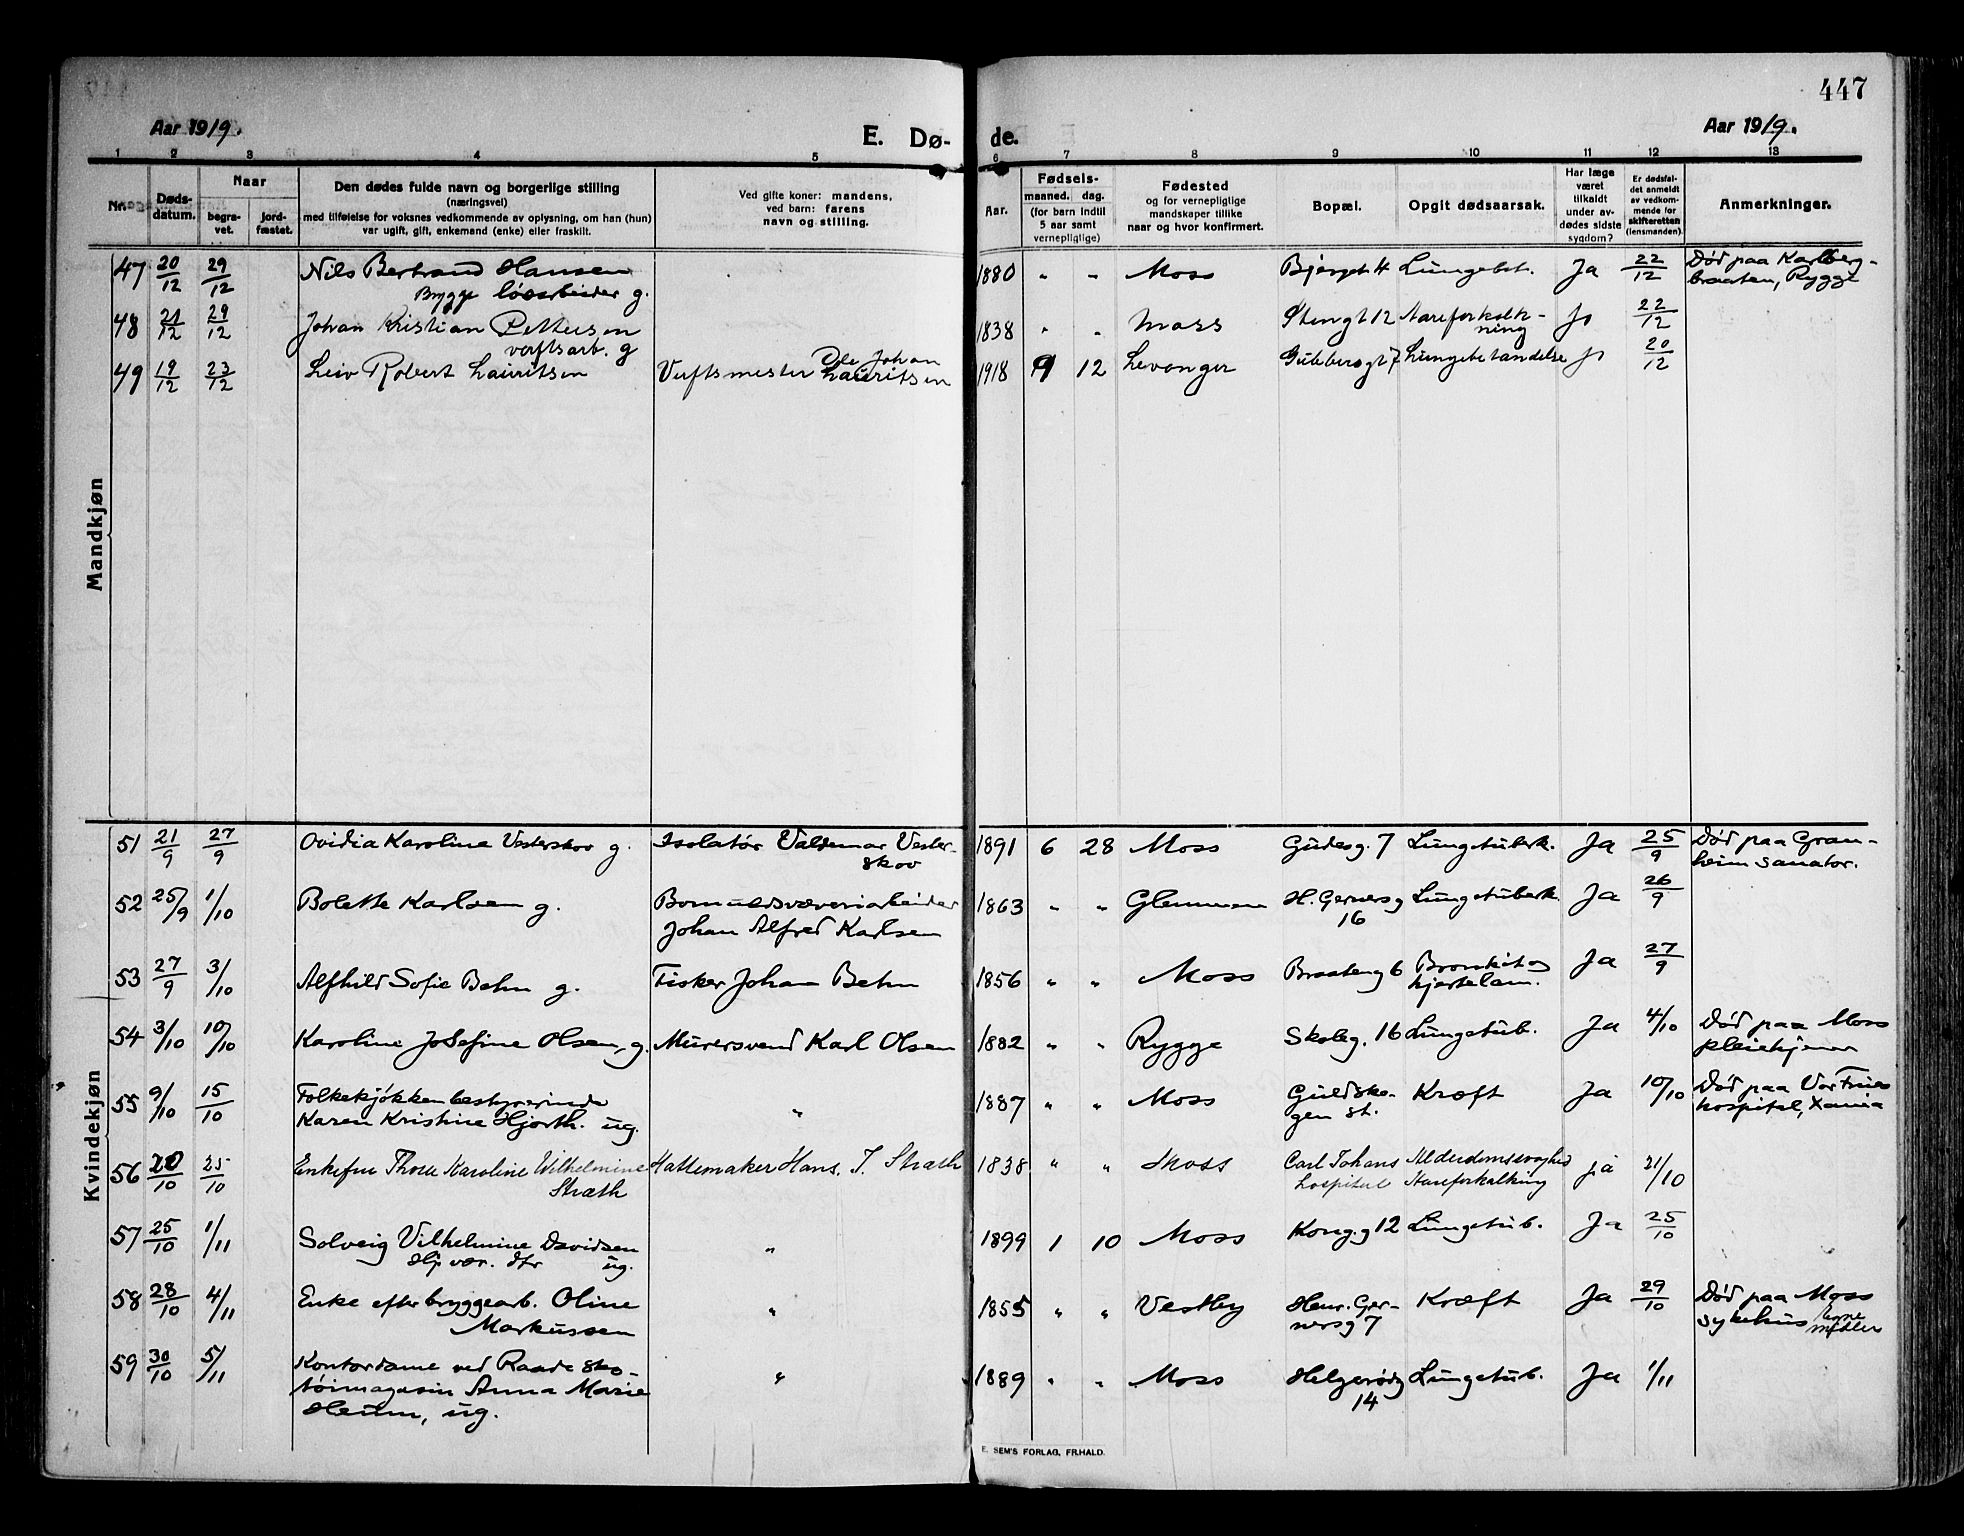 447
Aar 1919.
E. Dø-
de.
Aar 1919.
1 2 3 4 5 6 7 8 9 10 11 12 13
Nr.
Døds-
datum.
Naar
begra-
vet.
jord-
fæstet.
Den dødes fulde navn og borgerlige stilling
(næringsvei)
med tilføielse for voksnes vedkommende av oplysning, om han (hun)
var ugift, gift, enkemand (enke) eller fraskilt.
Ved gifte koner: mandens,
ved barn: farens
navn og stilling.
Aar.
Fødsels-
maaned. dag.
(for barn indtil
5 aar samt
vernepligtige)
Fødested
og for vernepligtige
mandskaper tillike
naar og hvor konfirmert.
Bopæl.
Opgit dødsaarsak.
Har læge
været
tilkaldt
under av-
dødes sidste
sygdom?
Er dødsfal-
det anmeldt
av vedkom-
mende for
skifteretten
(lensmanden).
Anmerkninger.
Mandkjøn
47 20/12 29/12 Nils Bertrand Hansen 1880 " " Moss Bjerget 4 Lungebet. Ja 22/12 Død paa Karlberg-
Brygge løsarbeider g. braaten, Rygge
48 21/12 29/12 Johan Kristian Pettersen 1838 " " Moss Stengt 12 Aareforkalk- Ja 22/12
verftsarb. g ning
49 19/12 23/12 Leiv Robert Lauritsen Verftsmester Ole Johan 1918 9 12 Levanger Gudebergt 7 Lungebetændelse Ja 20/12
Lauritsen
Kvindekjøn
51 21/9 27/9 Ovidia Karoline Vesterskov g. Isolatør Valdemar Vester- 1891 6 28 Moss Gudesg. 7 Lungetuberk. Ja 25/9 Død paa Gran-
skov heim sanator.
52 25/9 1/10 Bolette Karlsen g. Bomuldsvæveriarbeider 1863 " " Glemmen H. Gerners g Lungetuberk. Ja 26/9
Johan Alfred Karlsen 16
53 27/9 3/10 Alfhild Sofie Behn g. Fisker Johan Behn 1856 " " Moss Braateng 6 Bronkit og Ja 27/9
hjertelam.
54 3/10 10/10 Karoline Josefine Olsen, g. Murersvend Karl Olsen 1882 " " Rygge Skoleg. 16 Lungetub. Ja 4/10 Død paa Moss
pleiehjem
55 9/10 15/10 Folkekjøkkenbestyrerinde " 1887 " " Moss Guldsko- Kræft Ja 10/10 Død paa Vor Frues
Karen Kristine Hjorth. ug. gen st. hospital, Xania
56 20/10 25/10 Enkefru Thora Karoline Wilhelmine Hattemaker Hans. J. Stræth 1838 " " Moss Carl Johans Alderdomssvaghed ja 21/10
Stræth hospital Aareforkalkning
57 25/10 1/11 Solveig Vilhelmine Davidsen " 1899 1 10 Moss Kong. g 12 Lungetub. Ja 25/10
Hj. vær. dtr ug.
58 28/10 4/11 Enke efter bryggearb. Oline " 1855 " " Vestby Henr. Ger- Kræft Ja 29/10 Død paa Moss
Markussen nersg 7 sykehus egne
midler
59 30/10 5/11 Kontordame ved Raade sko- " 1889 " " Moss Helgerødg Lungetub. Ja 1/11
tøimagasin Anna Marie 14
Heum, ug.
E. SEM'S FORLAG, FR.HALD.